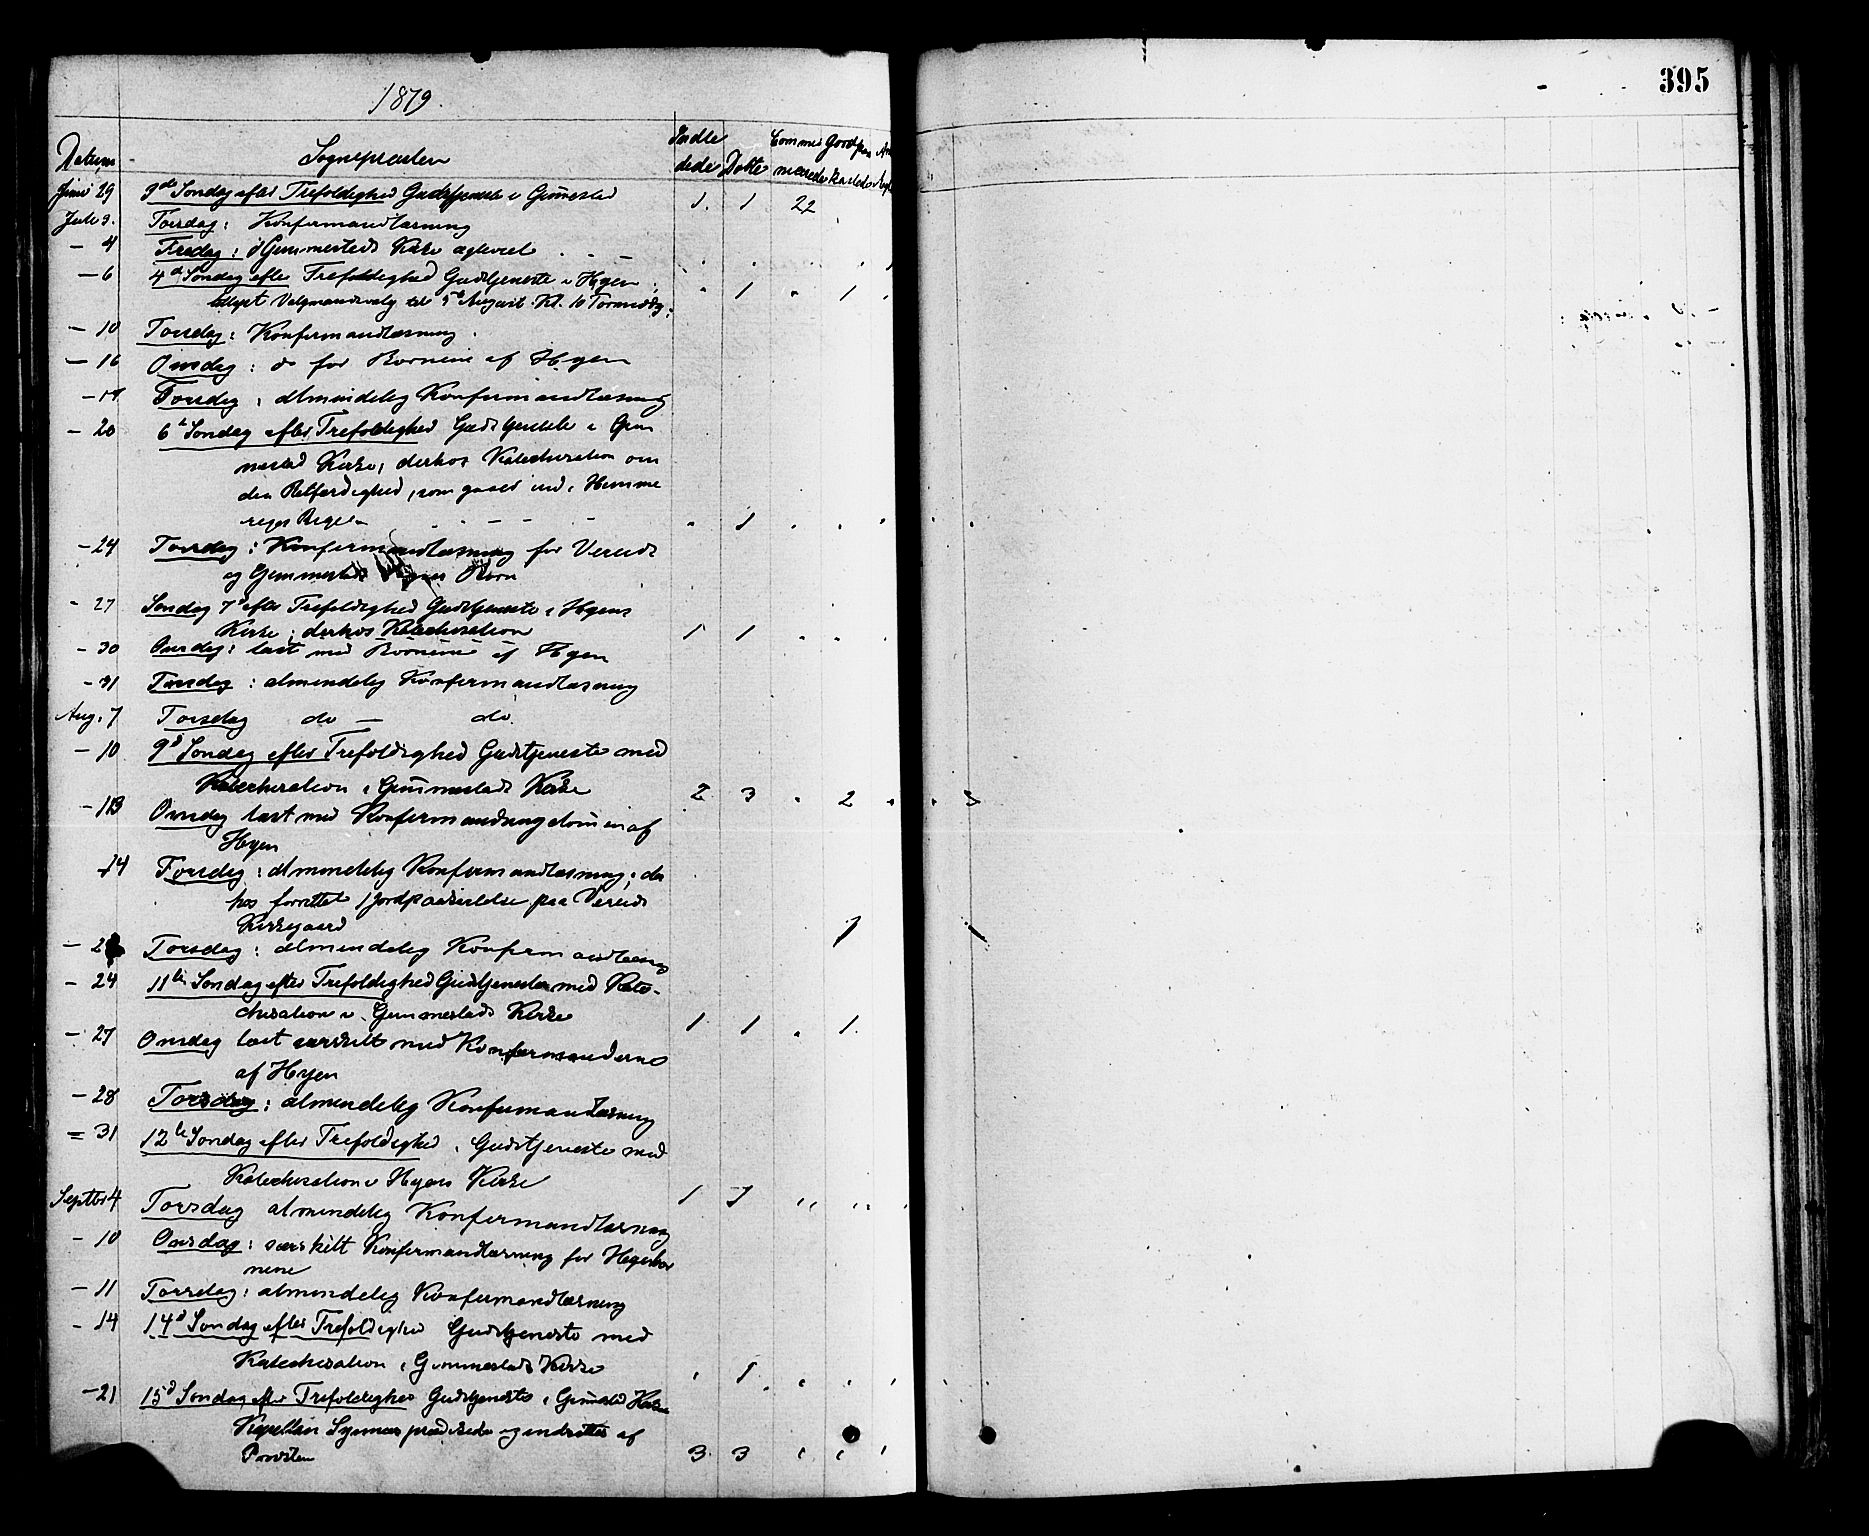 395
1879.
Datum, Sognepresten Indle Døbte Commu Jordpaa
dede nicerede kastede
Juni 29 3de Søndag efter Trefoldighed Gudstjeneste i Gimmestad 1. 1 22
Juli 3. Torsdag: Konfirmandlæsning
— 4 Fredag: i Gimmestads Kirke
— 6 4de Søndag efter Trefoldighed Gudstjeneste i Hyen;
Valgmandsvalg til 5te August Kl. 10 Formiddg. 1 1
— 10 Torsdag: Konfirmandlæsning.
— 16 Onsdag: do for Børnene af Hyen
— 17 Torsdag: almindelig Konfirmandlæsning
— 20 6te Søndag efter Trefoldighed Gudstjeneste i Gim
mestad Kirke; derhos Katechisation om
den Retfærdighed, som gaaer ind i Himme
riges Rige 1
— 24 Torsdag: Konfirmandlæsning for Vereids
og Gimmestads Børn
— 27 Søndag 7de efter Trefoldighed Gudstjeneste i Hyens
Kirke; derhos Katechisation 1 1
— 30 Onsdag: læst med Børnene af Hyen
— 31 Torsdag: almindelig Konfirmandlæsning
Aug. 7 Torsdag do — do.
— 10 9de Søndag efter Trefoldighed Gudstjeneste med
Katechisation i Gimmestads Kirke 2 3 2 3
— 13 Onsdag læst med Konfirmandungdommen af
Hyen
14 Torsdag: almindelig Konfirmandlæsning; der
hos forrettet 1 Jordpaakastelse paa Vereids
Kirkegaard 1
— 2 Torsdag: almindelig Konfirmandlæsng
— 24 11te Søndag efter Trefoldighed Gudstjeneste med Kate-
chisation i Gimmestads Kirke 1. 1 1.
— 27 Onsdag læst særskilt med Konfirmanderne
af Hyen
— 28 Torsdag: almindelig Konfirmandlæsning
= 31 12te Søndag efter Trefoldighed. Gudstjeneste med
Katechisation i Hyens Kirke
Septbr 4 Torsdag almindelig Konfirmandlæsning 1
— 10 Onsdag: særskilt Konfirmandlæsning for Hyenbør
nene
— 11 Torsdag: almindelig Konfirmandlæsning
— 14 14de Søndag efter Trefoldighed Gudstjeneste med
Katechisation i Gimmestads Kirke 1
— 21 15de Søndag efter Trefoldighed Gudstjeneste i
Kapellan prædikede og af
Provsten 3. 3